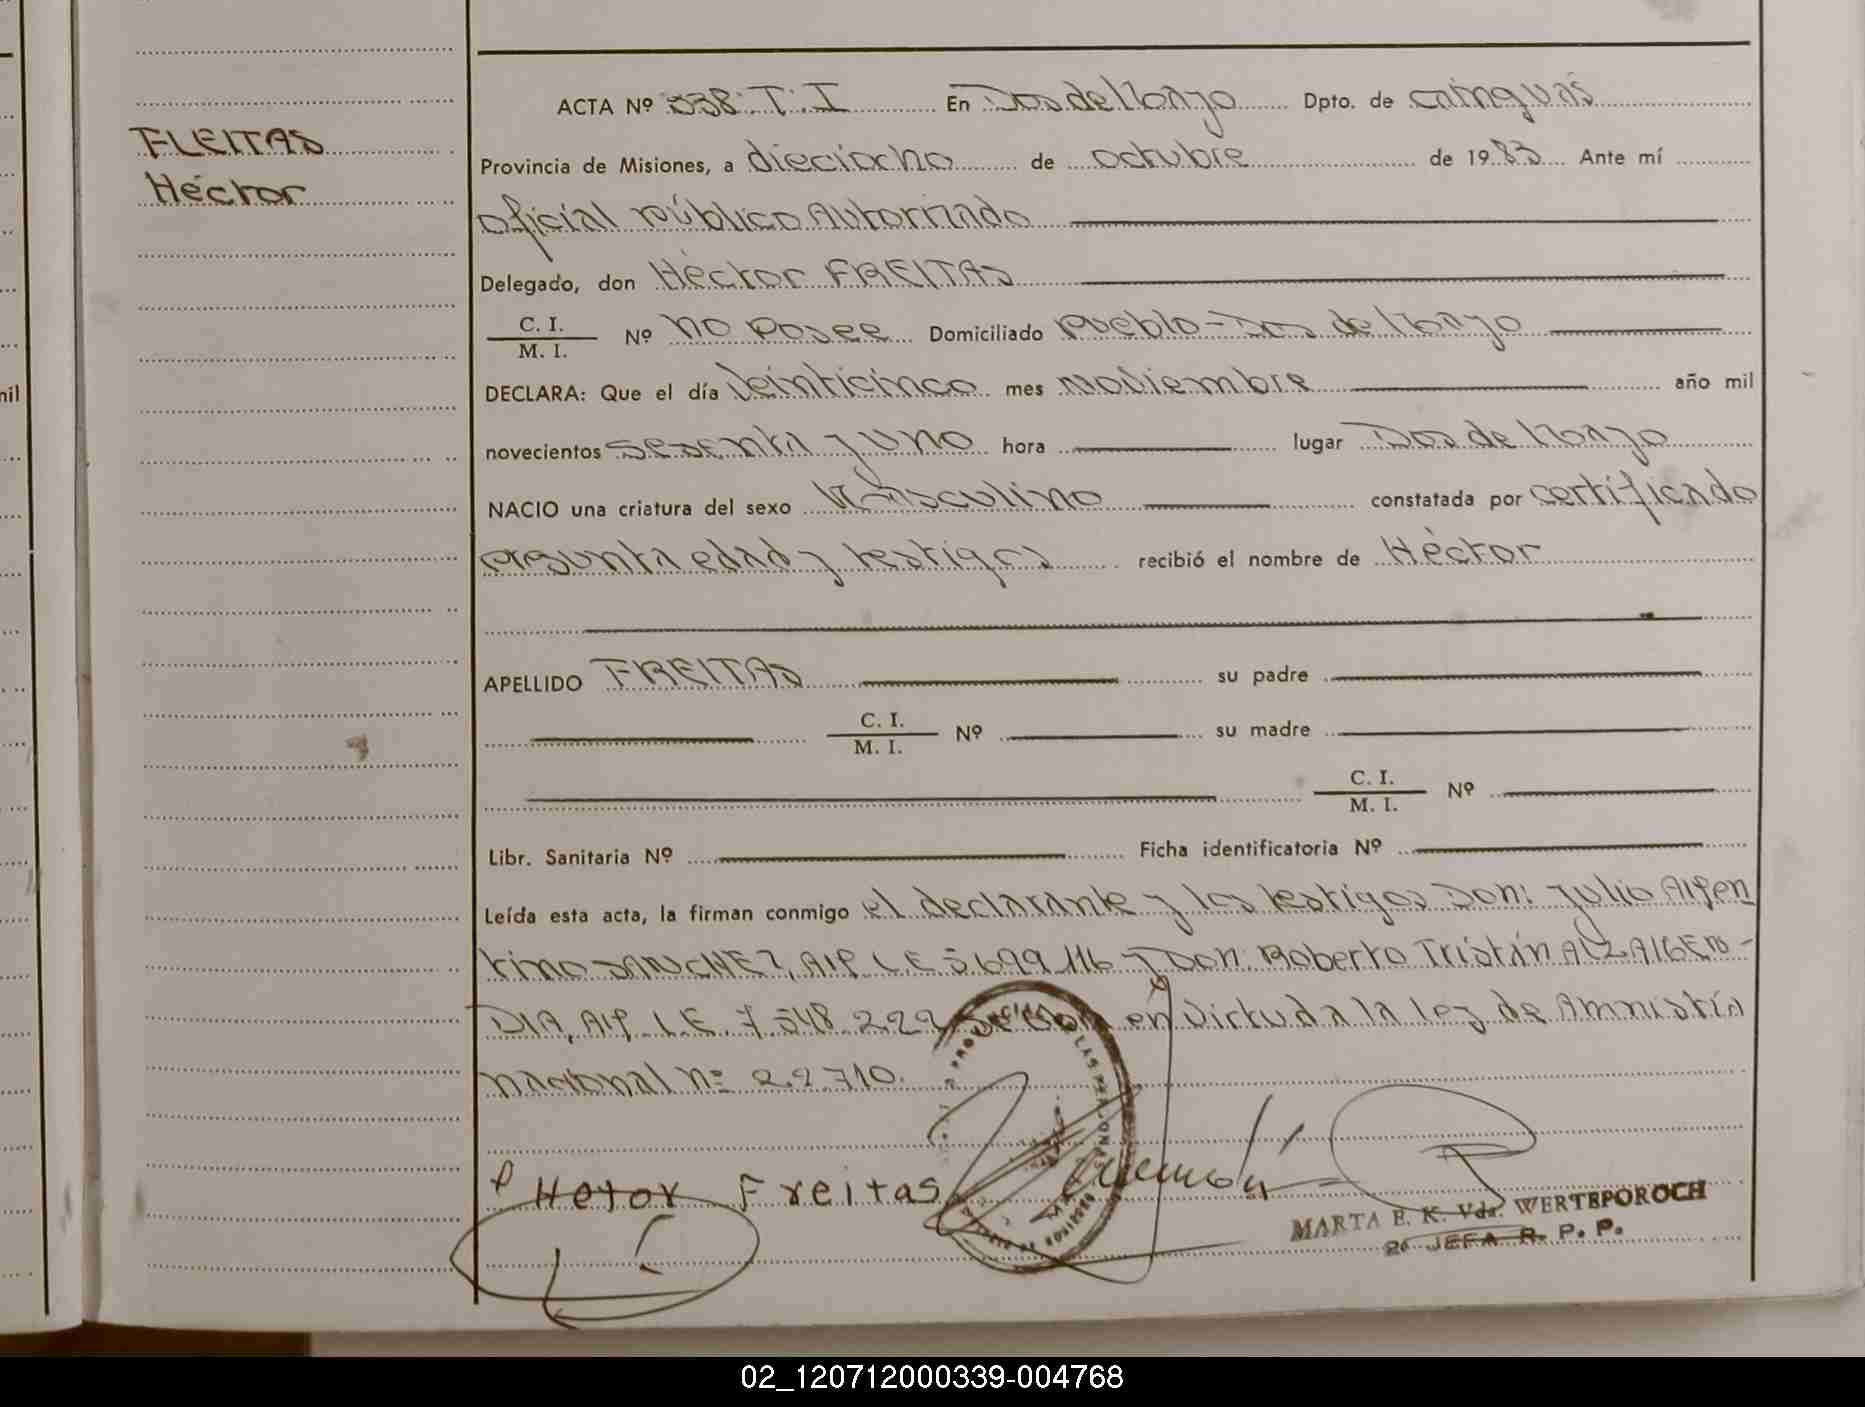 ACTA Nº 338 T. I En Dos de Mayo Dpto. de cainguás
FLEITAS
Héctor
Provincia de Misiones, a dieciocho de octubre de 1983 Ante mí
oficial público Autorizado
Delegado, don Héctor FREITAS
C. I.
M. I. Nº no posee Domiciliado pueblo - Dos de Mayo
DECLARA: Que el día Veinticinco mes noviembre año mil
novecientos sesenta y uno hora lugar Dos de Mayo
NACIO una criatura del sexo Masculino constatada por certificado
presunta edad y testigos recibió el nombre de Héctor
APELLIDO FREITAS su padre
C. I.
M. I. Nº su madre
C. I.
M. I. Nº
Libr. Sanitaria Nº Ficha identificatoria Nº
Leída esta acta, la firman conmigo el declarante y los testigos Don: Julio Argen
tino SANCHEZ, L.E 5.699.116 y Don: Roberto Tristán
DIA, L.E. 7.548.222 en Virtud a la Ley de Amnistía
nacional nº 22.710.
Hetor Freitas
MARTA E. K. Vda. WERTEPOROCH
2ª JEFA R. P. P.
02_120712000339-004768